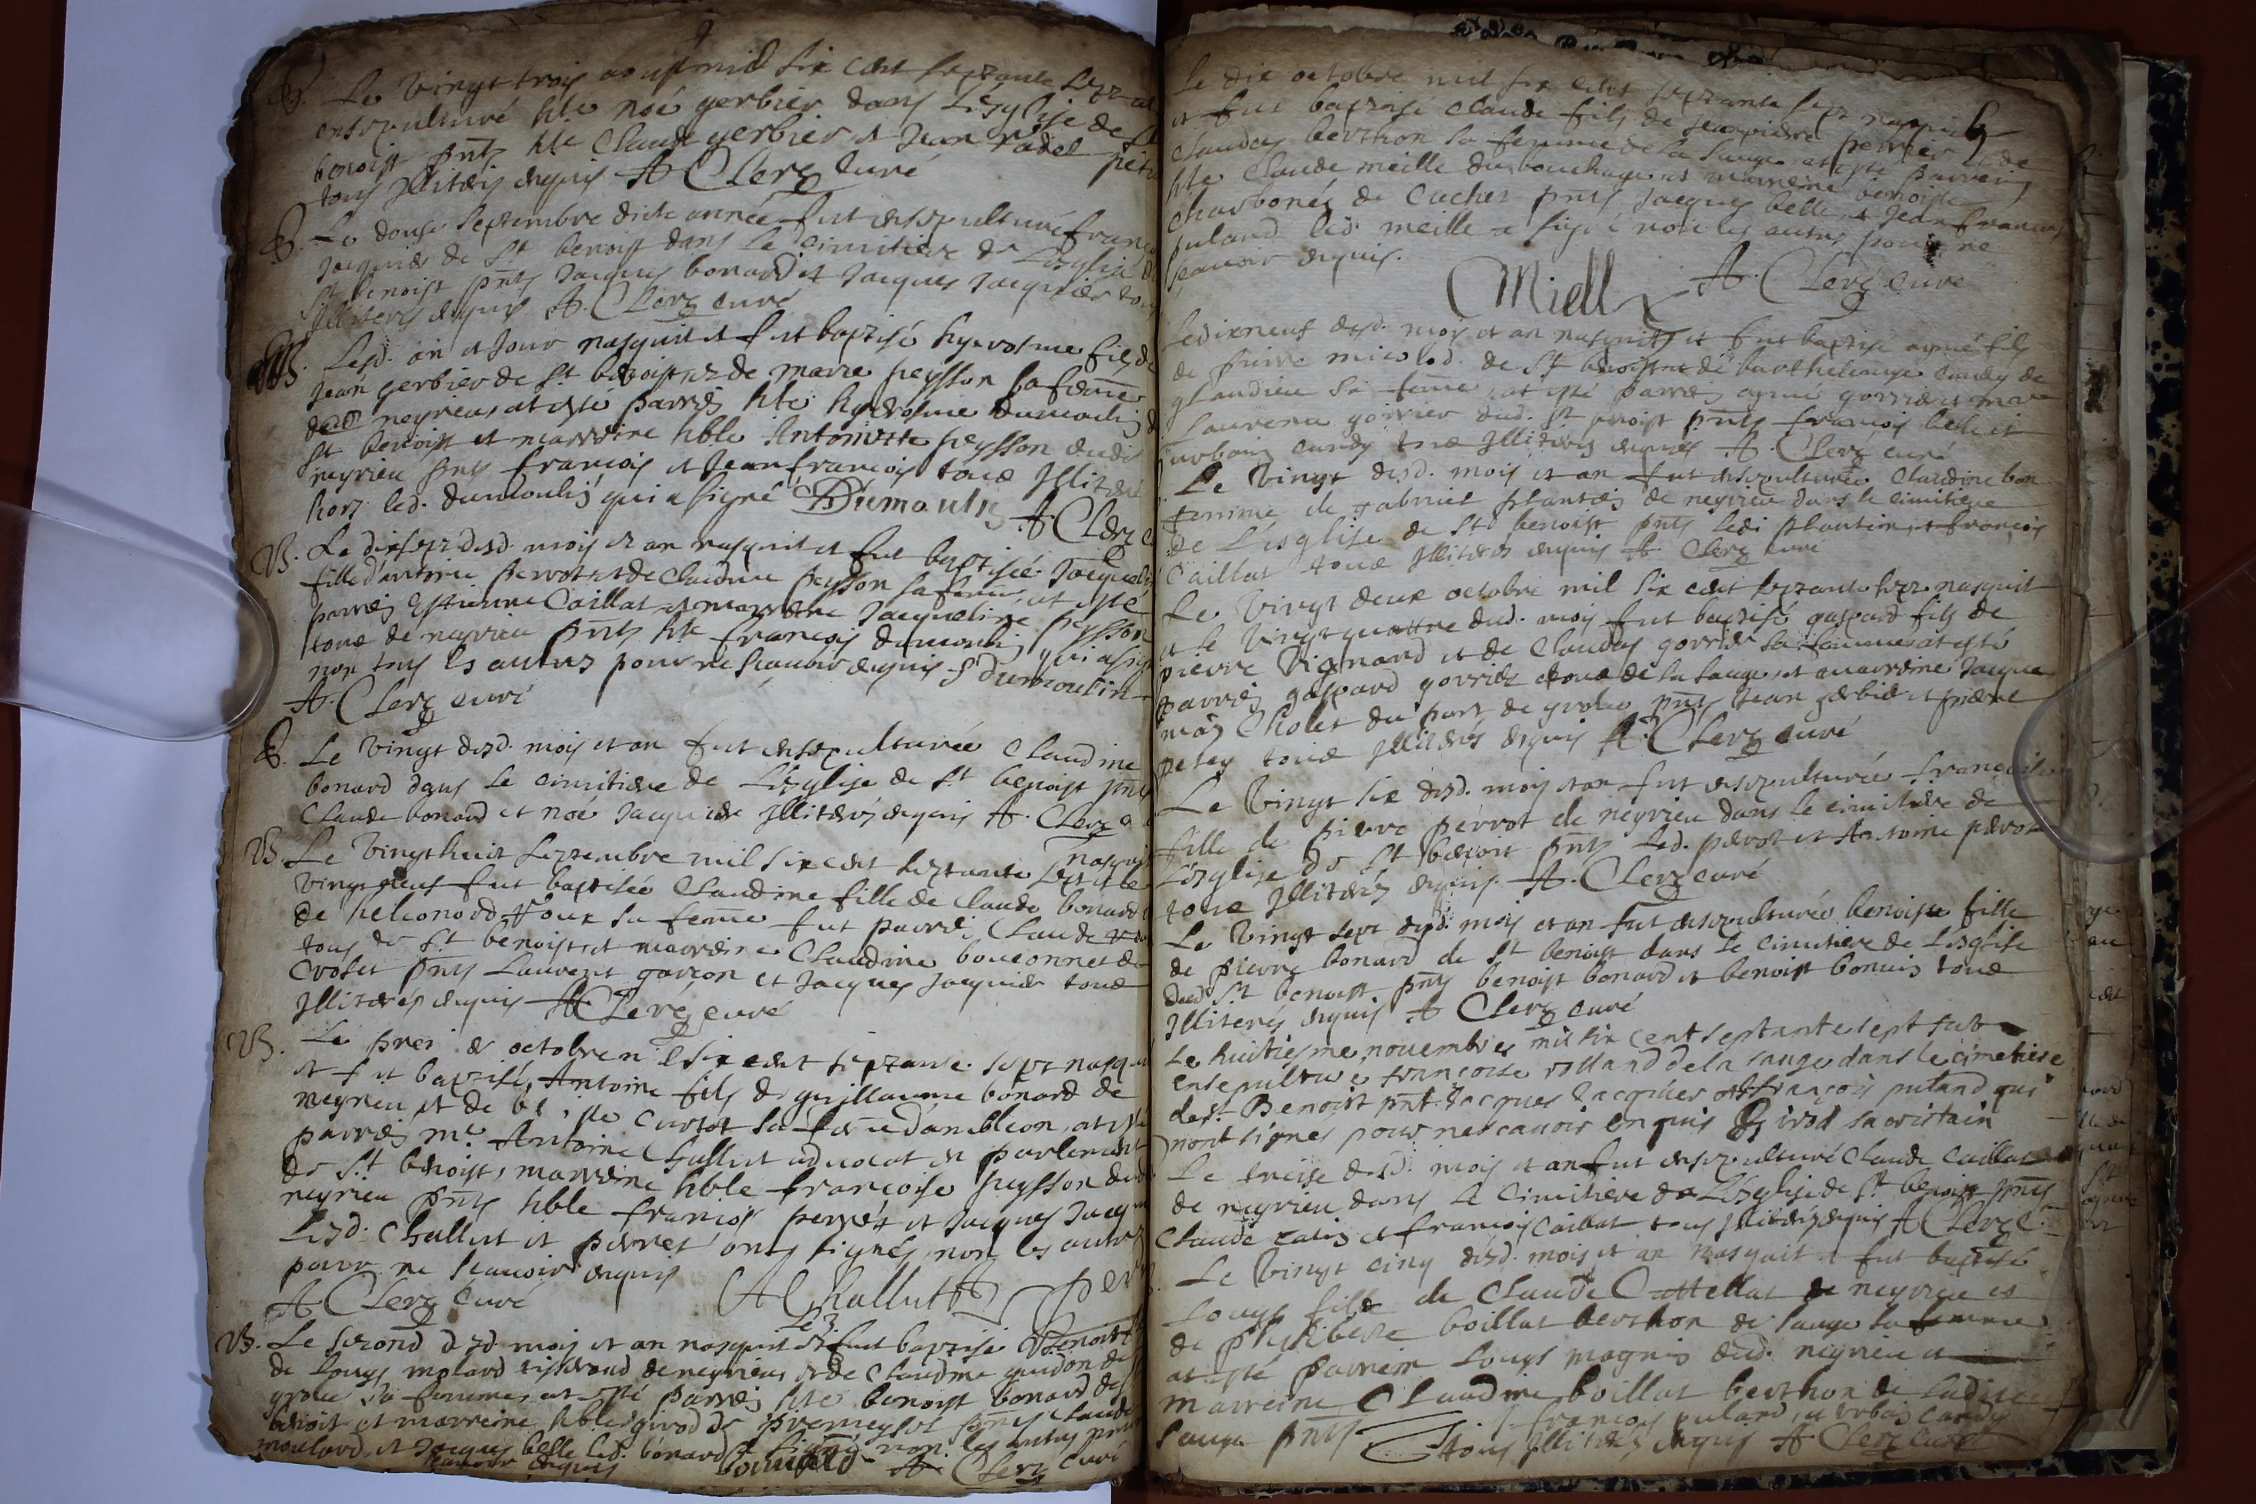 Le vingt trois aoust mil six cent septante sept
ensepulturé hte noé gerbier dans L'esglise de
benoist pnts hte Claude gerbier et Jean radel
tous Illiterés enquis A Clerq curé
Le douse septembre dicte année fut ensepulturé
Jacquier de St benoist dans le cimitiere de L'esglise
St benoist pnts Jacques bonard et Jacques Jacquier
Illiterés enquis A. Clerq curé
B. Lesd. an et Jour nasquit et fut baptisé hyerosme fils de
Jean gerbier de St benoist et de marie peysson sa feme
neyrieu at esté parrein hte hyerosme dumoulin
St benoist et marreine hble Antoinette peysson dudit
neyrieu pnts francois et Jean francois tous Illiteré
hors led. dumoulin qui a signé Dumoulin A. Clerq
B. Le dixsept desd. mois et an nasquit et fut baptisée
fille d'antoine perrot et de Claudine peysson sa feme at esté
parrein Estienne Caillat et marreine Jacqueline peysson
tous de neyrieu pnts hte francois dumoulin qui a signé
non tous les autres pour ne scauoir enquis dumoulin
A. Clerq curé
Le vingt desd. mois et an fut ensepulturée Claudine
bonard dans le cimitiere de L'esglise de St benoist pnts
Claude bonard et noé Jacquier Illiterés enquis A. Clerq
B. Le vingt huit septembre mil six cent septante sept et le
nasquit
vingt neuf fut baptisée Claudine fille de Claude bonard
sa feme fut parrein Claude
tous de St benoist et marreine Claudine bouconnet de
Crolet pnts Laurent garcon et Jacques Jacquier tous
Illiterés enquis A Clerq curé
B. Le octobre mil six cent septante sept nasquit
et fut baptisé Antoine fils de guillaume bonard de
neyrieu et de curtet sa feme d'ambleon at esté
parrein me Antoine Challut aduocat en parlement
de St benoist, marreine hble francoise peysson dud
neyrieu pnts hble francois perret et Jacques
Lesd. Challut et perret onts signés non les autres
pour ne scauoir enquis
A Clerq curé AChallut
B. Le second desd mois et an nasquit et fut baptisé Benoist
de Louys molard tisserand de neyrieu et de Claudine guidon de
grolee sa femme, at esté parrein hte benoist bonard de
benoist et marreine hble girod de premeysel pnts Claude
moulard, et Jacques belle led. bonard a signé non les autres
scauoir enquis bonard A Clerq curé
Le dix octobre mil six cent septante sept nasquit
et fut baptisé Claude fils de Jean pierre perrier et de
Clauda berthon sa femme de la sauge at esté parrein
hte Claude meille du bouchage et marreine benoiste
Charbonés de Cuchet pnts Jacques belle et Jean francois
puland led. meille a signé non les autres pour ne
scauoir enquis.
Miell A. Clerq curé
Le dixneuf desd. mois et an nasquit et fut baptisé aymé fils
de pierre micolod. de St benoist et de barthelemye candy de
glandieu sa feme, at esté parrein aymé gorrier et mare
Laurence gorrier dud. St benoist pnts francois belle et
urbain candy tous Illiterés enquis A. Clerq curé
Le vingt desd. mois et an fut ensepulturée Claudine bon
femme de gabriel plantin de neyrieu dans le cimitiere
de L'esglise de St benoist pnts ledi plantin et francois
Caillat tous Illiterés enquis A Clerq curé
Le vingt deux octobre mil six cent septante sept nasquit
et le vingt quattre dud. mois fut baptisé gaspard fils de
pierre vignard et de Clauda gorrier sa femme at esté
parrein gaspard gorrier tous de la sauge, et marreine Jacque
may Cholet du port de grolee pnts Jean gerbier et pierre
petey tous Illiterés enquis A. Clerq curé
Le vingt six desd. mois et an fut ensepulturée francoise
fille de pierre perrot de neyrieu dans le cimitiere de
L'esglise de St benoit pnts led. perrot et Antoine perrot
tous Illiterés enquis. A. Clerq curé
Le vingt sept desd. mois et an fut ensepulturée benoiste fille
de pierre bonard de St benoist dans le cimitiere de L'esglise
dud St benoist pnts benoist bonard et benoist bonuin tous
Illiterés enquis A Clerq curé
Le huitiesme nouembre mil six cent septante sept fut
ensepulturé francoise rolland de la sauge dans le cimetiere
de st Benoist pnt. Jacques Jacquier et francois puland qui
nont signes pour ne scauoir enquis girod sacristain
Le treise desd. mois et an fut ensepulturé Claude Caillat
de neyrieu dans le cimitiere de L'esglise de St benoist pnts
Claude ratin et francois Caillat tous Illiterés enquis A Clerq C.
Le vingt cinq desd. mois et an nasquit et fut baptisé
Louys fille de Claude Cattellat de neyrieu et
de philiberte boillat berthon de sauge sa femme
at esté parrein Louys magnin dud. neyrieu et
marreine Claudine boillat berthon de ladite
sauge pnts francois puland, et urbain candy
tous Illiterés enquis A Clerq curé